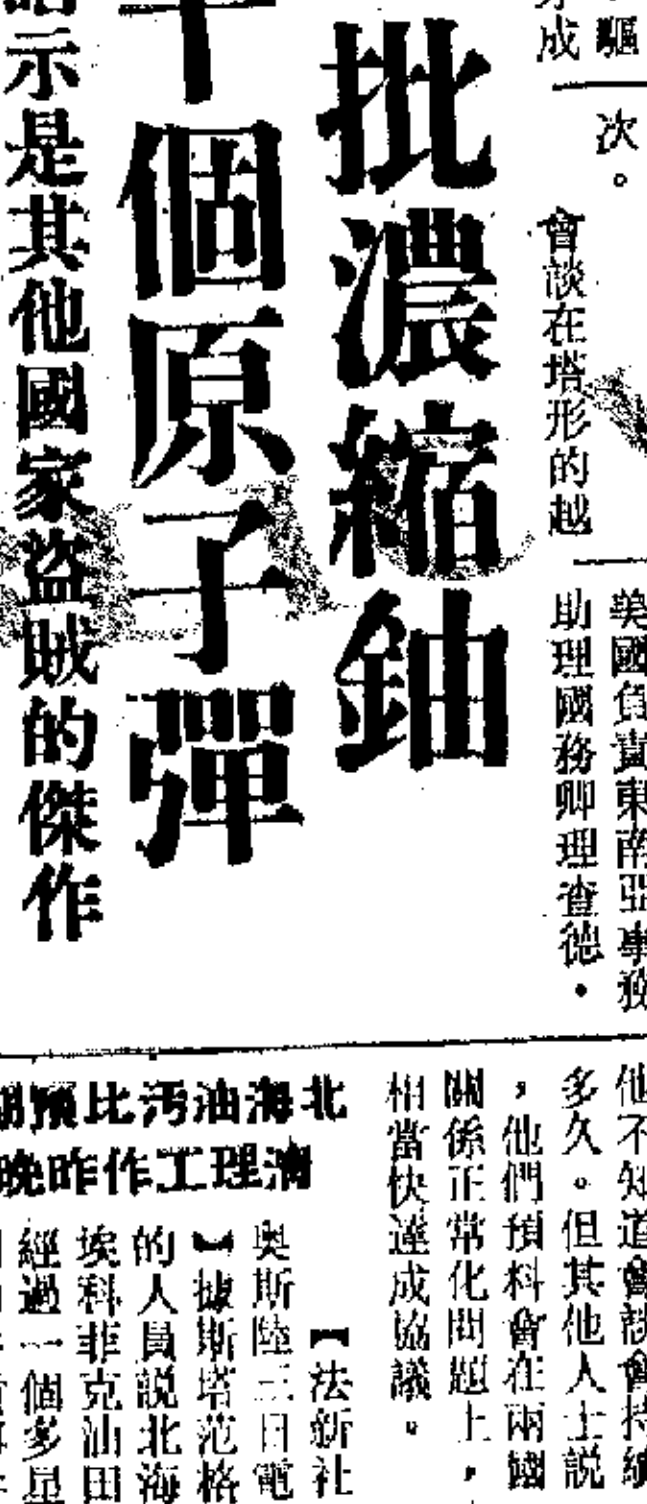 驅
成
次。
會談在塔形的越
美國負責東南亞事務
助理國務卿理查德·
批濃縮鈾
十個原子彈
示是其他國家盜賊的傑作
他不知道會談會持續
多久。但其他人士説
，他們預料會在兩國
關係正常化問題上，
相當快達成協議。
北海油污比預期
清理工作昨晚
【法新社
奧斯陸三日電
】據斯塔范格
的人員説北海
埃科菲克油田
經過一個多星